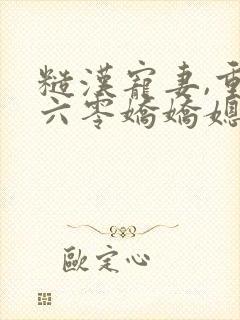 糙漢寵妻,重
六零嬌嬌媳
歐定心